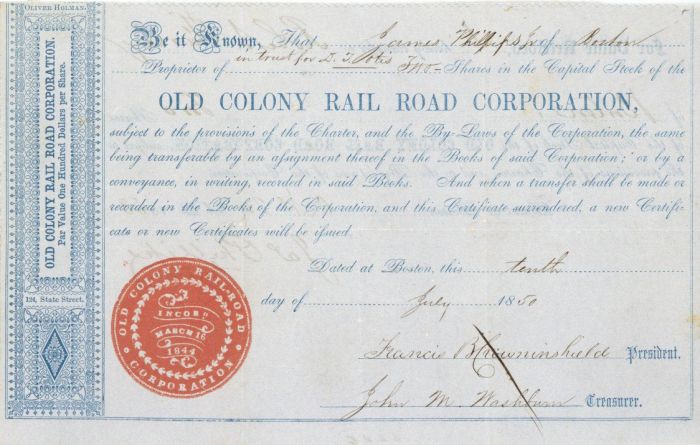 OLIVER HOLMAN.
OLD COLONY RAIL ROAD CORPORATION.
Par Value One Hundred Dollars per Share.
124, State Street.
Be it Known, That James Phillips Jr of Boston
in trust for
Proprietor of Two Shares in the Capital Stock of the
OLD COLONY RAIL ROAD CORPORATION,
subject to the provisions of the Charter, and the By-Laws of the Corporation, the same
being transferable by an aſsignment thereof in the Books of said Corporation; or by a
conveyance, in writing, recorded in said Books. And when a transfer shall be made or
recorded in the Books of the Corporation, and this Certificate surrendered, a new Certifi-
cate or new Certificates will be issued.
Dated at Boston, this tenth
day of July 1850
OLD COLONY RAIL-ROAD
INCORD
MARCH 16
1844
CORPORATION
Francis B Crowninshield President.
John M. Washburn Treasurer.